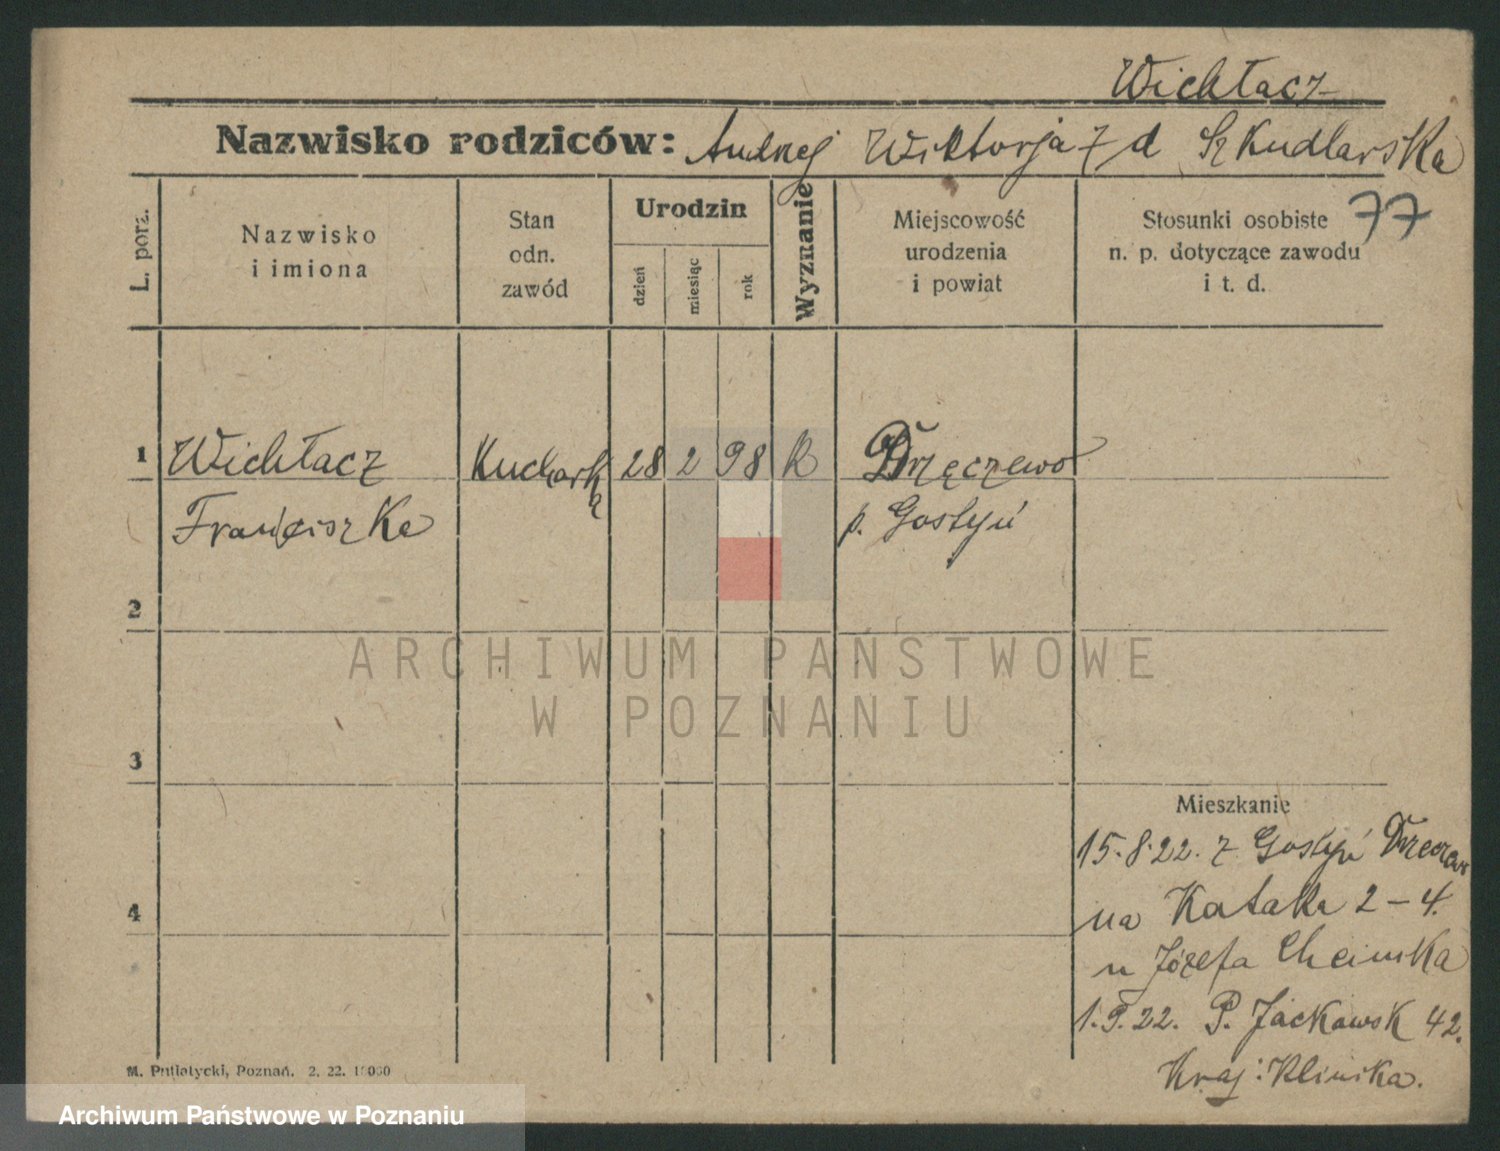 Wichłacz
Nazwisko rodziców: Andrzej Wiktorja z d Szkudlarska
77
L. porz.
Nazwisko
i imiona
Stan
odn.
zawód
Urodzin
dzień
miesiąc
rok
Wyznanie
Miejscowość
urodzenia
i powiat
Stosunki osobiste
n. p. dotyczące zawodu
i t. d.
1 Wichłacz Kucharka 28 2 98 K Drzęczewo
Franciszka p. Gostyń
2
ARCHIWUM PAŃSTWOWE
W POZNANIU
3
Mieszkanie
15.8.22. z Gostyń
4
na Kataka 2-4.
u Józefa
1.9.22. P. Jackowsk 42.
Kraj: Klinika.
M. Putiatycki, Poznań. 2. 22.
Archiwum Państwowe w Poznaniu